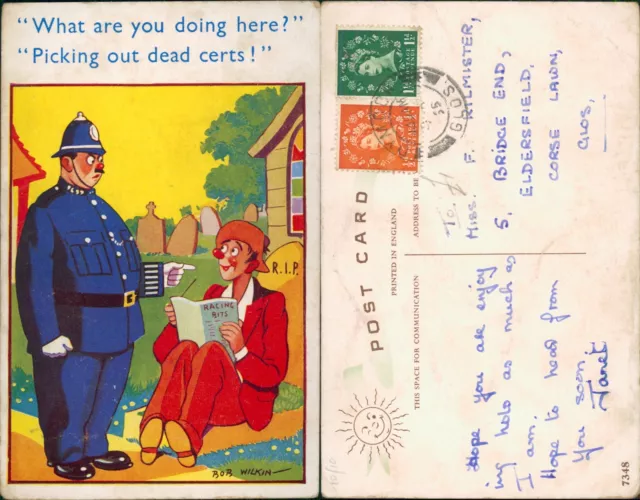 "What are you doing here?"
"Picking out dead certs!"
R.I.P.
RACING
BITS
BOB WILKIN
POST CARD
PRINTED IN ENGLAND
THIS SPACE FOR COMMUNICATION
ADDRESS TO BE
To.
MISS. F. KILMISTER,
5, BRIDGE END,
ELDERSFIELD,
CORSE LAWN,
GLOS,
Hope you are enjoy
ing hols as much as
I am.
Hope to head from
you soon,
Janet
7348
GLOS
1½D
POSTAGE
½D